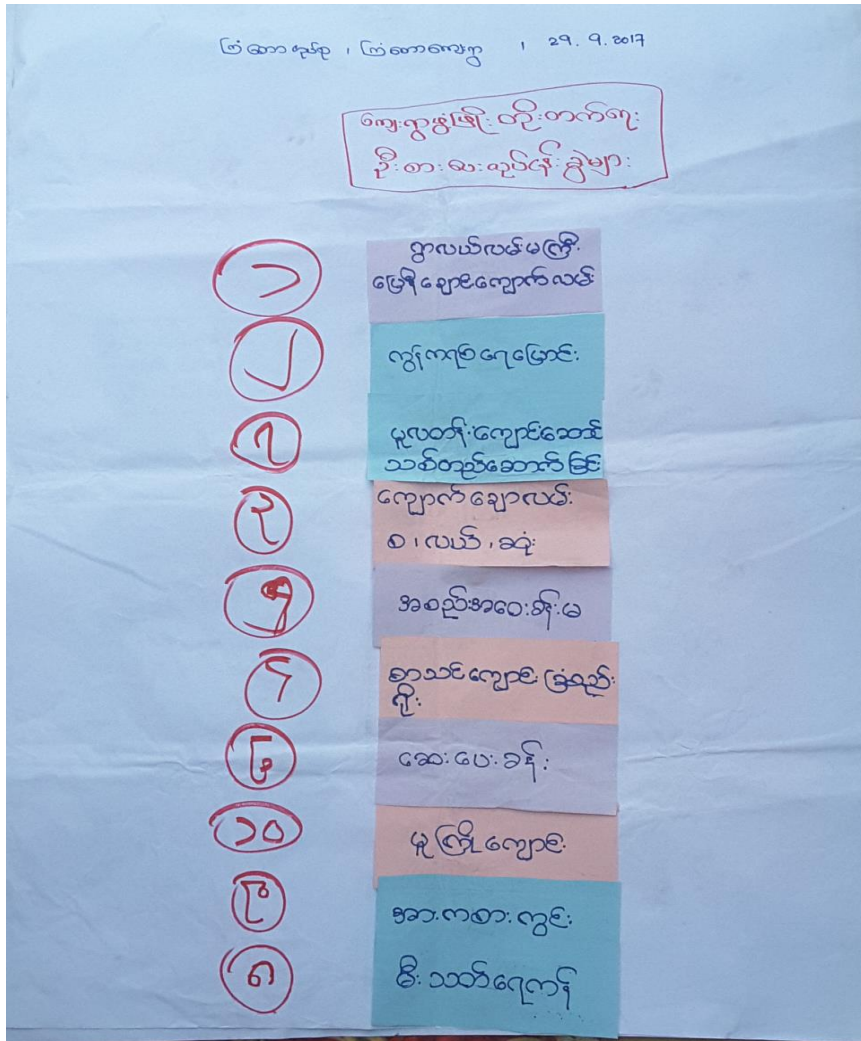 ကြံတောအုပ်စု ၊ ကြံတောကျေးရွာ ၊ 29. 9. 2017
ကျေးရွာဖွံ့ဖြိုးတိုးတက်ရေး
ဦးစားပေးလုပ်ငန်းခွဲများ
၁
ရွာလယ်လမ်းမကြီး
မြေနီချောင်းကျောက်လမ်း
၂
ကွန်ကရစ်ရေမြောင်း
၇
မူလတန်းကျောင်းဆောင်
သစ်တည်ဆောက်ခြင်း
၃
ကျောက်ချောလမ်း
စ ၊ လယ် ၊ ဆုံး
၅
အစည်းအဝေးခန်းမ
၄
စာသင်ကျောင်းခြံစည်း
ရိုး
၆
ဆေးပေးခန်း
၁၀
မူကြိုကျောင်း
၉
အားကစားကွင်း
၈
မီးသတ်ရေကန်